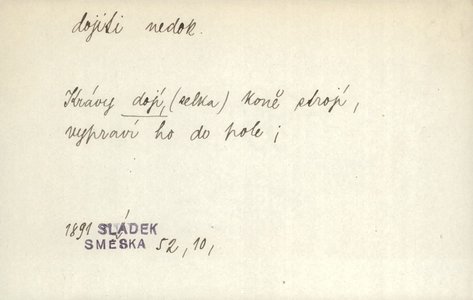 dojiti nedok.
Krávy dojí, (selka) koně strojí,
vypraví ho do pole;
1891 SLÁDEK
SMĚSKA 52, 10,